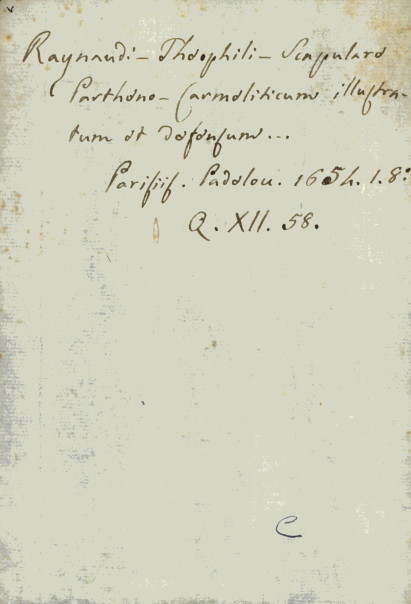 Raynaudi - Theophili - Scapulare
Partheno - Carmeliticum illustra-
tum et defensum...
Parisiis. Padelou. 1654. 1. 8º
Q. XII. 58.
C